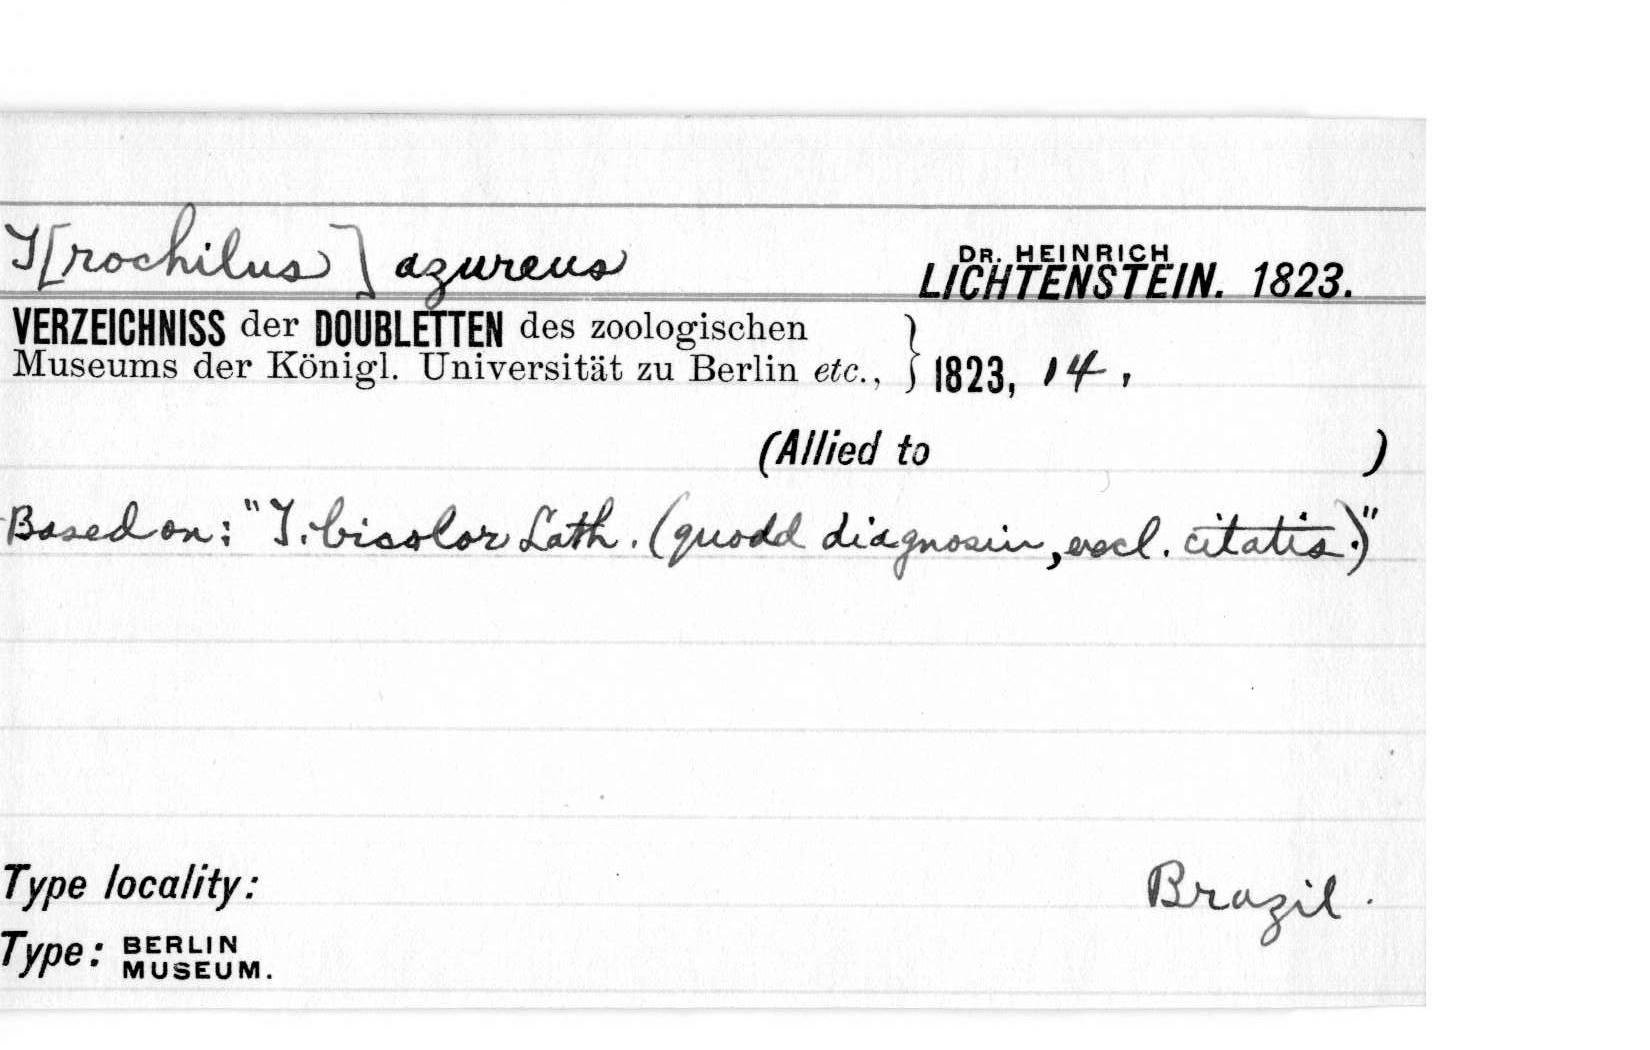 T[rochilus] azureus
DR. HEINRICH
LICHTENSTEIN. 1823.
VERZEICHNISS der DOUBLETTEN des zoologischen
Museums der Königl. Universität zu Berlin etc., } 1823, 14,
(Allied to )
Based on: "T. bicolor Lath. (quodd diagnosin, excl. citatis.)"
Type locality: Brazil.
Type: BERLIN
MUSEUM.